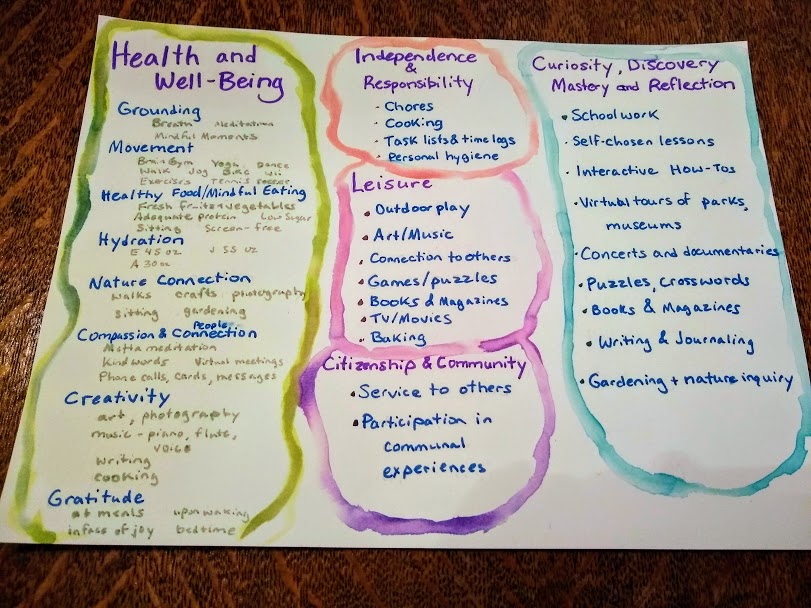 Health and
Well-Being
Grounding
Breath Meditation
Mindful Moments
Movement
Brain Gym Yoga Dance
Walk Jog Bike Wii
Exercises Tennis soccer
Healthy Food/Mindful Eating
Fresh fruits + vegetables
Adequate protein Low Sugar
Sitting Screen-free
Hydration
E 45 oz J 55 oz
A 30 oz
Nature Connection
walks crafts photography
sitting gardening
People
Compassion & Connection
Metta meditation
Kind words Virtual meetings
Phone calls, cards, messages
Creativity
art, photography
music - piano, flute,
voice
writing
cooking
Gratitude
at meals upon waking
infuse of joy bedtime
Independence
&
Responsibility
· Chores
· Cooking
· Task lists & time logs
· Personal hygiene
Leisure
• Outdoor play
• Art/Music
• Connection to others
• Games/puzzles
• Books & Magazines
• TV/Movies
• Baking
Citizenship & Community
• Service to others
• Participation in
communal
experiences
Curiosity, Discovery
Mastery and Reflection
• School work
· Self-chosen lessons
· Interactive How-Tos
· Virtual tours of parks,
museums
· Concerts and documentaries
· Puzzles, Crosswords
• Books & Magazines
• Writing & Journaling
• Gardening + nature inquiry